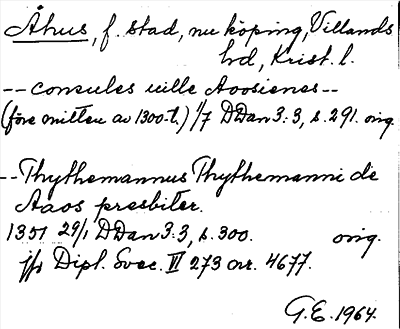 Åhus, f. stad, nu köping, Villands
hd, Krist. l.
-- consules uille Aosienes --
(före mitten av 1300-t.) 1/7 DDan 3:3, s. 291. orig
-- Thythemannus Thythemanni de
Aaos presbiter.
1351 29/1 DDan 3:3, s. 300. orig.
jfr Dipl. Svec. VI 273 nr. 4677.
G.E. 1964.